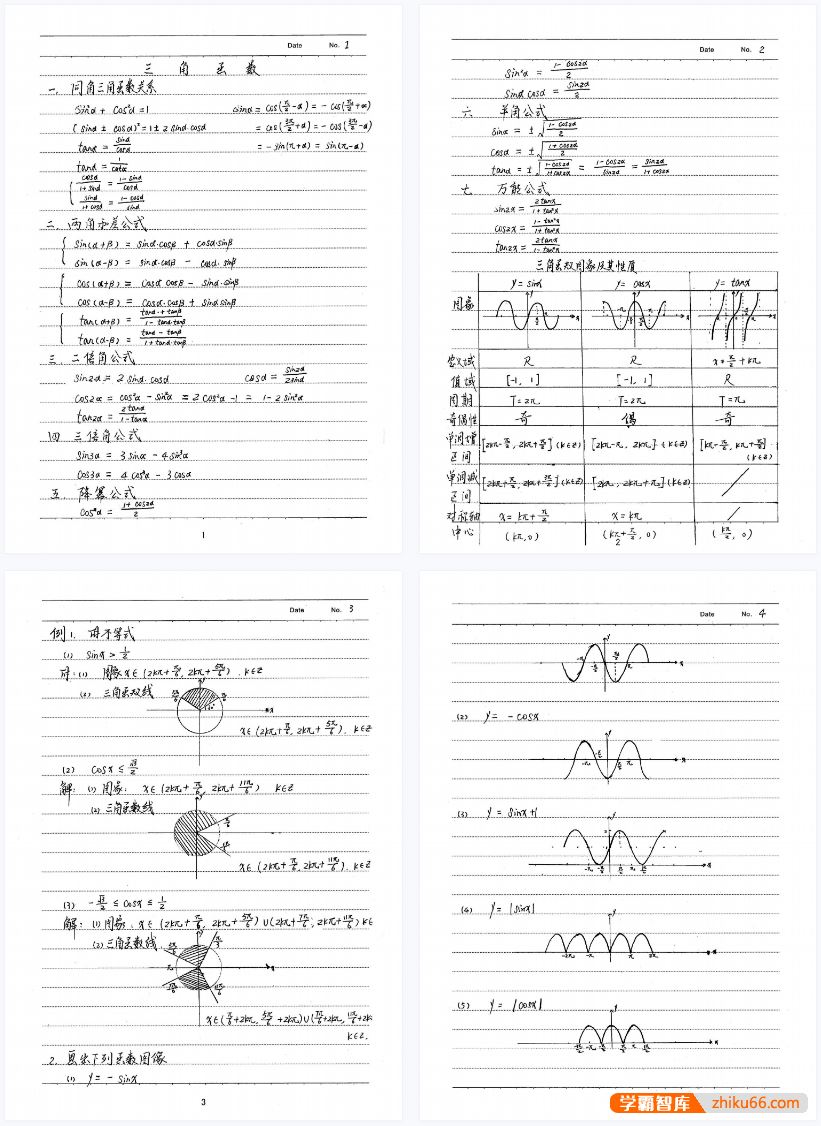 Date No. 1
三 角 函 数
一. 同角三角函数关系
sin²α + cos²α = 1 sinα = cos(π/2-α) = -cos(π/2+α)
(sinα ± cosα)² = 1 ± 2 sinα·cosα = cos(3π/2+α) = -cos(3π/2-α)
tanα = sinα/cosα = -sin(π+α) = sin(π-α)
tanα = 1/cotα
cosα/1+sinα = 1-sinα/cosα
sinα/1+cosα = 1-cosα/sinα
二. 两角和差公式
sin(α+β) = sinα·cosβ + cosα·sinβ
sin(α-β) = sinα·cosβ - cosα·sinβ
cos(α+β) = cosα·cosβ - sinα·sinβ
cos(α-β) = cosα·cosβ + sinα·sinβ
tan(α+β) = tanα+tanβ/1-tanα·tanβ
tan(α-β) = tanα-tanβ/1+tanα·tanβ
三. 二倍角公式
sin2α = 2 sinα·cosα cosα = sin2α/2sinα
cos2α = cos²α - sin²α = 2cos²α - 1 = 1 - 2sin²α
tan2α = 2tanα/1-tan²α
四. 三倍角公式
sin3α = 3 sinα - 4 sin³α
cos3α = 4 cos³α - 3 cosα
五. 降幂公式
cos²α = 1+cos2α/2
1
Date No. 2
sin²α = 1-cos2α/2
sinα cosα = sin2α/2
六. 半角公式
sinα = ±√1-cos2α/2
cosα = ±√1+cos2α/2
tanα = ±√1-cos2α/1+cos2α = 1-cos2α/sin2α = sin2α/1+cos2α
七. 万能公式
sin2x = 2tanx/1+tan²x
cos2x = 1-tan²x/1+tan²x
tan2x = 2tanx/1-tan²x
三角函数图象及其性质
y = sinx y = cosx y = tanx
图象
定义域 R R x = π/2 + kπ
值域 [-1, 1] [-1, 1] R
周期 T = 2π T = 2π T = π
奇偶性 奇 偶 奇
单调增区间 [2kπ-π/2, 2kπ+π/2] (k∈Z) [2kπ-π, 2kπ] (k∈Z) [kπ-π/2, kπ+π/2] (k∈Z)
单调减区间 [2kπ+π/2, 2kπ+3π/2] (k∈Z) [2kπ, 2kπ+π] (k∈Z)
对称轴 x = kπ+π/2 x = kπ
中心 (kπ, 0) (kπ+π/2, 0) (kπ/2, 0)
Date No. 3
例1. 解不等式
(1) sinx > 1/2
解: (1) 图象 x∈(2kπ+π/6, 2kπ+5π/6). k∈Z
(2) 三角函数线
x∈(2kπ+π/6, 2kπ+5π/6). k∈Z
(2) cosx ≤ √3/2
解: (1) 图象: x∈(2kπ+π/6, 2kπ+11π/6) k∈Z
(2) 三角函数线
x∈(2kπ+π/6, 2kπ+11π/6). k∈Z
(3) -√3/2 ≤ cosx ≤ 1/2
解: (1) 图象, x∈(2kπ+π/6, 2kπ+5π/6)∪(2kπ+7π/6, 2kπ+11π/6) k∈
(2) 三角函数线
x∈(π/6+2kπ, 5π/6+2kπ)∪(7π/6+2kπ, 11π/6+2k
k∈Z.
2. 画出下列函数图像
(1) y = - sinx
3
Date No. 4
(2) y = - cosx
(3) y = sinx+1
(4) y = |sinx|
(5) y = |cosx|
学霸智库 zhiku66.com